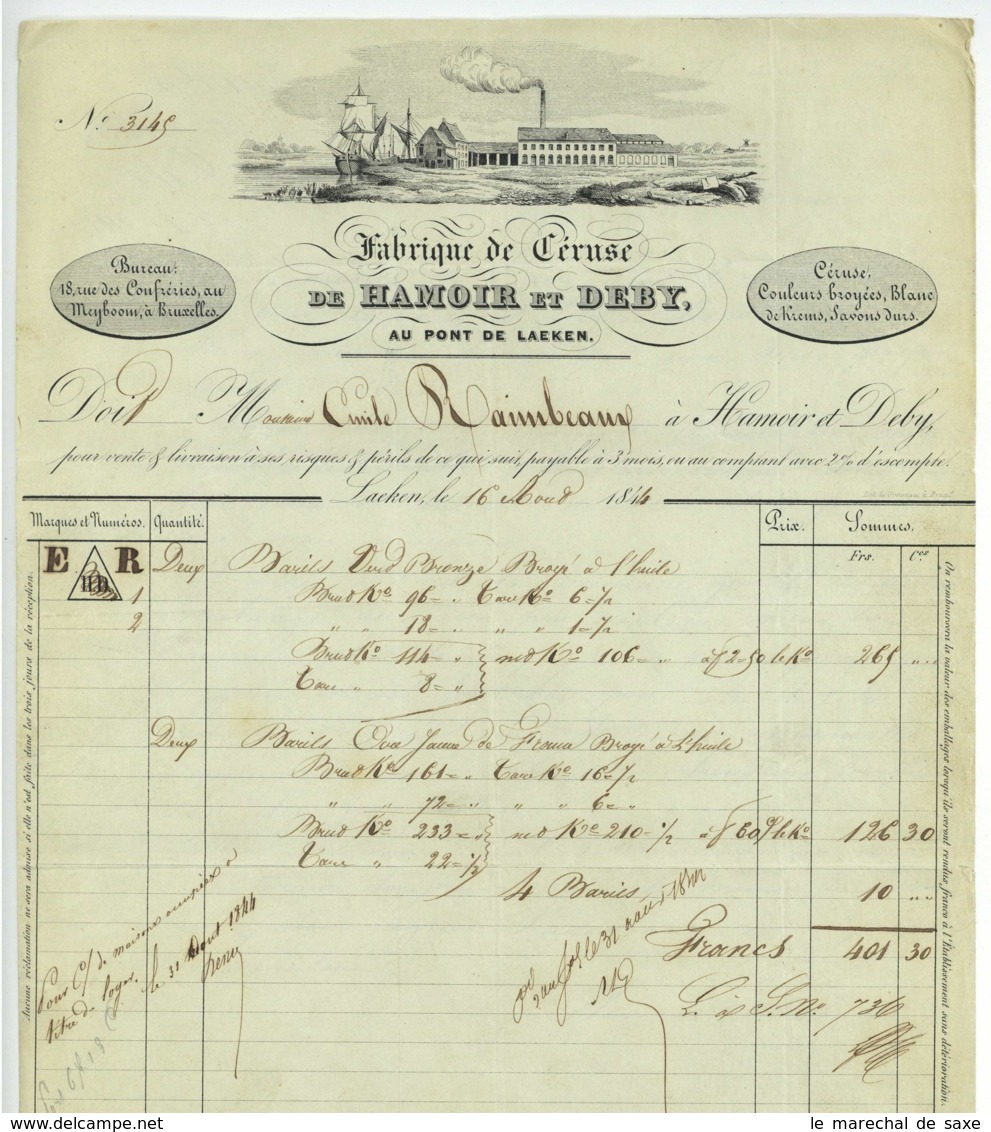 N.º 3145
Fabrique de Céruse
DE HAMOIR ET DEBY,
AU PONT DE LAEKEN.
Bureau:
18, rue des Confréries, au
Meyboom, à Bruxelles.
Céruse,
Couleurs broyées, Blanc
de Krems, Savons durs.
Doit Monsieur Emile Raimbeaux à Hamoir et Deby,
pour vente & livraison à ses, risques & périls de ce qui suit, payable à 3 mois, ou au comptant avec 2% d'escompte.
Laeken, le 16 Aoud 1844
Marques et Numéros. Quantité. Prix. Sommes.
Frs. Ces
E HD R Deux Barils Verd Bronze Broyé à l'huile
1 Brud Ko 96 = " Tare Ko 6 - 1/2
2 " " 18 = " " " 1 - 1/2
Brud Ko 114 = " net Ko 106 = " à f 2=50 le Ko 265 " "
Tare " 8 = "
Deux Barils Ocre Jaune de France Broyé à l'huile
Brud Ko 161 = " Tare Ko 16 - 1/2
" " 72 = " " " 6 = "
Brud Ko 233 = " net Ko 210 - 1/2 à f 60 le Ko 126 30
Tare " 22 = 1/2
4 Barils 10 " "
Francs 401 30
736
le 31 Aout 1844
Pour C/ de maisons
titre de loyer.
Aucune réclamation ne sera admise si elle n'est faite dans les trois jours de la réception.
On remboursera la valeur des emballages lorsqu'ils seront rendus franco à l'Établissement sans détérioration.
le marechal de saxe